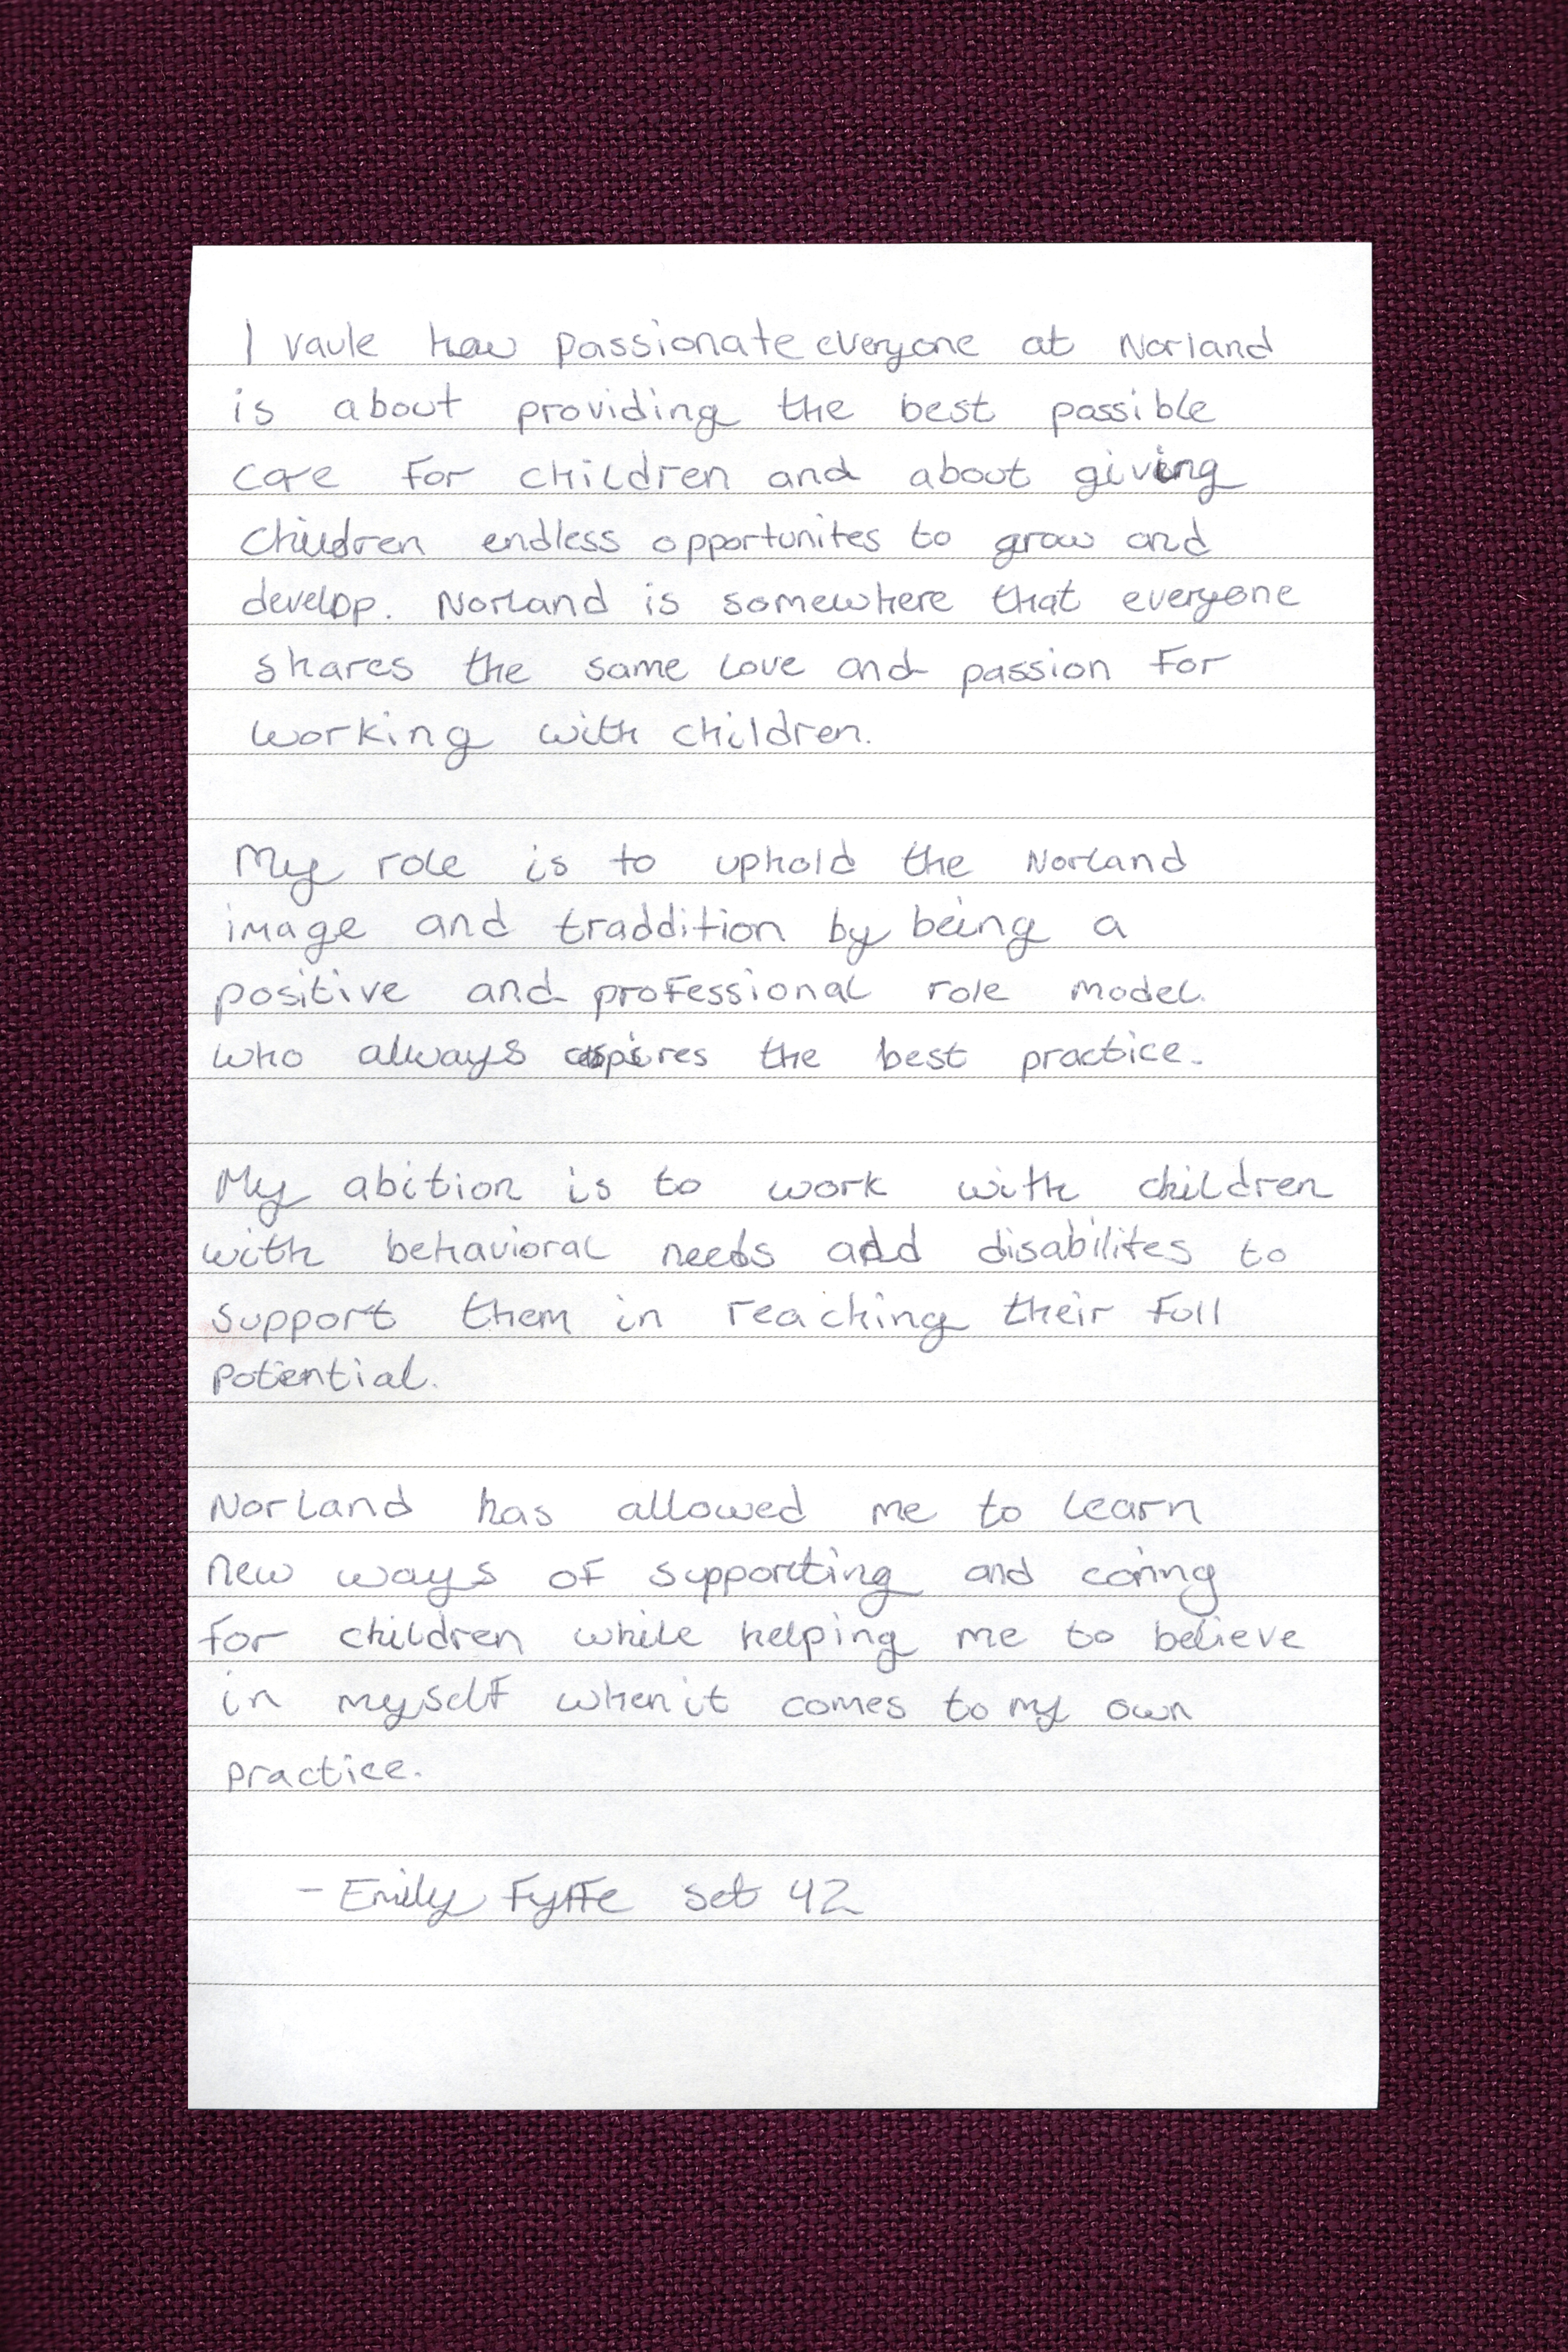 I vaule how passionate everyone at Norland
is about providing the best possible
care for children and about giving
children endless opportunites to grow and
develop. Norland is somewhere that everyone
shares the same love and passion for
working with children.
My role is to uphold the Norland
image and traddition by being a
positive and professional role model.
who always aspires the best practice.
My abition is to work with children
with behavioral needs add disabilites to
support them in reaching their full
potential.
Norland has allowed me to learn
new ways of supporting and caring
for children while helping me to believe
in myself when it comes to my own
practice.
- Emily Fyffe set 42